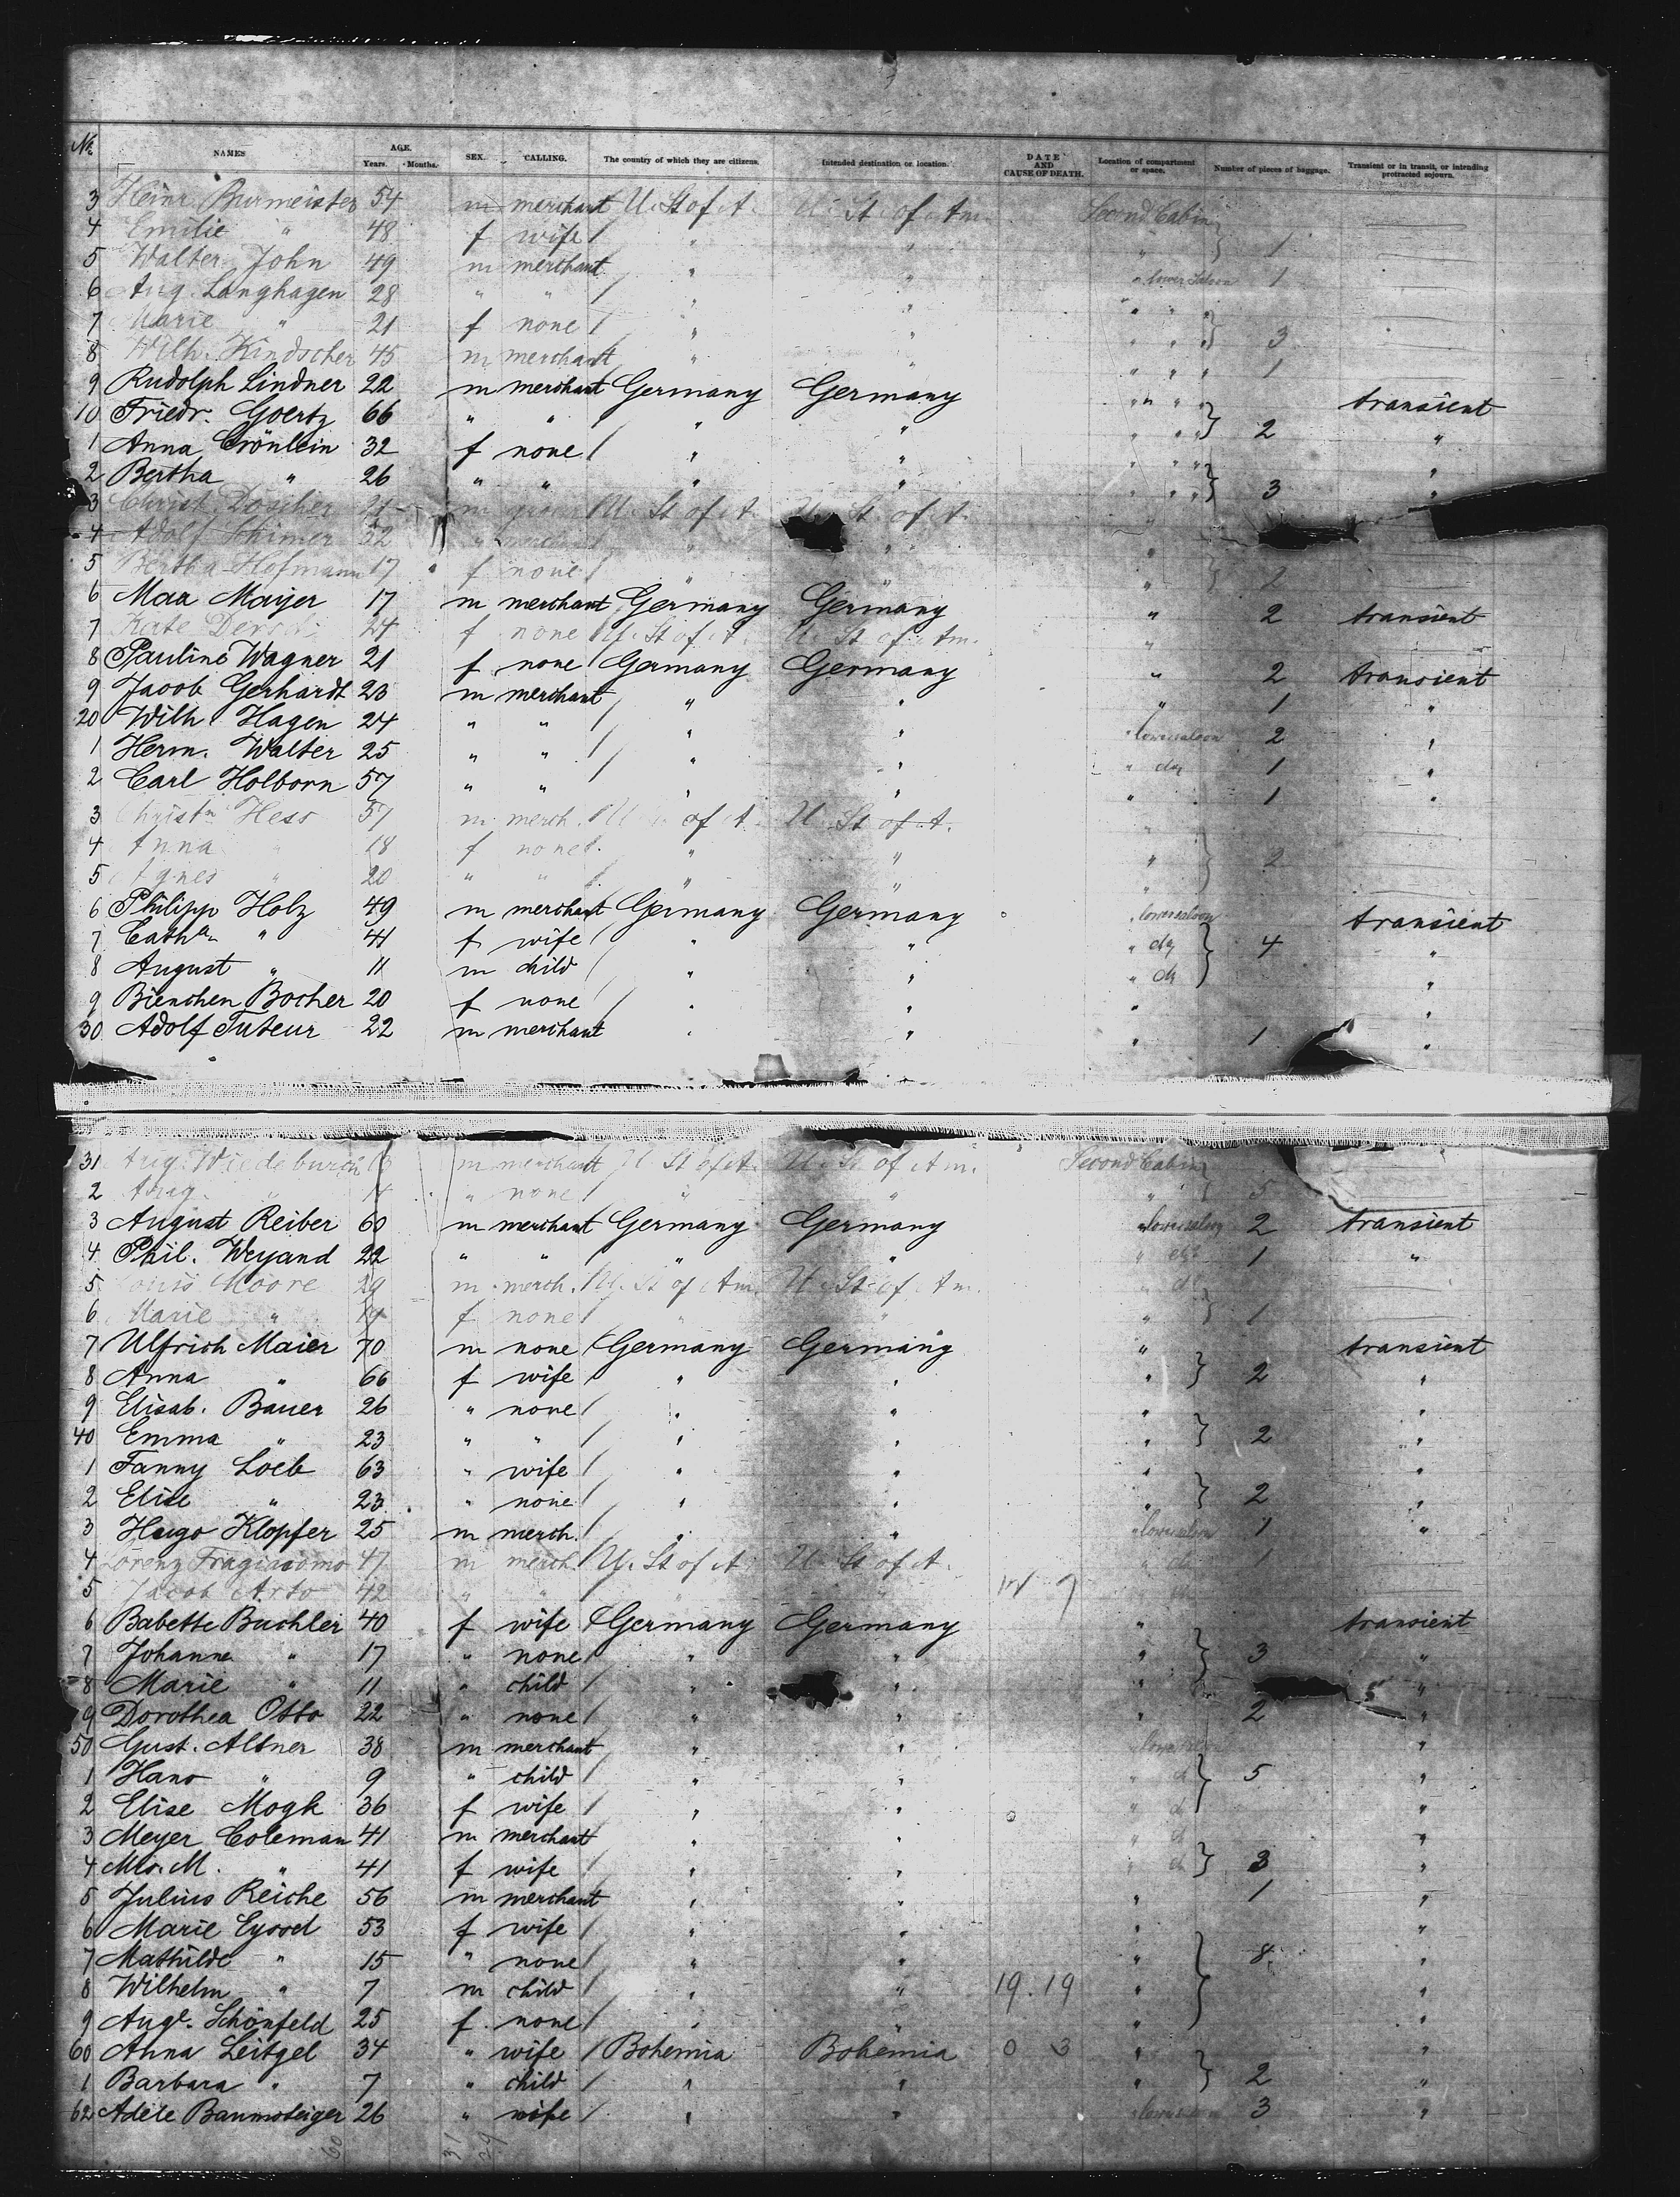 No. NAMES AGE. Years. Months. SEX. CALLING. The country of which they are citizens. Intended destination or location. DATE AND CAUSE OF DEATH. Location of compartment or space. Number of pieces of baggage. Transient or in transit, or intending protracted sojourn.
3 Heinr. Burmeister 54 m merchant U. St of A. U. St. of Am. Second Cabin
4 Emilie " 48 f wife / " " " } 1
5 Walter John 49 m merchant " " " lower Saloon 1
6 Aug. Langhagen 28 " " / " " " " "
7 Marie " 21 f none / " " " " " } 3
8 Wilh. Kindscher 45 m merchant " " " " " 1
9 Rudolph Lindner 22 m merchant Germany Germany " " " transient
10 Friedr. Goertz 66 " " " " " " " } 2 "
1 Anna Crönlein 32 f none / " " " " " "
2 Bertha " 26 " " " " " " " } 3 "
3 Christ. Doscher 21 m U. St of A. U. St. of A.
4 Adolf Schimer 52 " " " "
5 Bertha Hofmann 17 f none / " " " } 2
6 Max Mayer 17 m merchant Germany Germany " 2 transient
7 Kate 24 f none U. St of A. U. St of Am. "
8 Pauline Wagner 21 f none / Germany Germany " 2 transient
9 Jacob Gerhardt 23 m merchant " " " 1 "
20 Wilh. Hagen 24 " " / " " " lowersaloon 2 "
1 Herm. Walter 25 " " / " " " do 1 "
2 Carl Holborn 57 " " / " " " 1 "
3 Christn Hess 57 m merch. U. of A U. St of A. "
4 Anna " 18 f none / " " " } 2
5 Agnes " 20 " " / " " "
6 Philipp Holz 49 m merchant Germany Germany " lowersaloon transient
7 Catha " 41 f wife / " " " do } 4 "
8 August " 11 m child / " " " do "
9 Bienchen Bocher 20 f none / " " " "
30 Adolf Tuteur 22 m merchant " " " 1 "
31 Aug. Wiedebusch m merchant U. St of A. U. St of Am. Second Cabin
2 Aug. " " none / " " " } 5
3 August Reiber 60 m merchant Germany Germany " lowersaloon 2 transient
4 Phil. Weyand 22 " " " " " do 1 "
5 Louis Moore 29 m merch. U. St of Am. U. St of Am. " do
6 Marie " 19 f none / " " " } 1
7 Ulfrich Maier 70 m none / Germany Germany " transient
8 Anna " 66 f wife / " " " } 2 "
9 Elisab. Bauer 26 " none / " " "
40 Emma " 23 " " / " " " } 2 "
1 Fanny Loeb 63 " wife / " " " "
2 Elise " 23 " none / " " " } 2 "
3 Hugo Klopfer 25 m merch. / " " " lowersaloon 1 "
4 Lorenz Fragiacomo 47 m merch. / U. St of A U. St of A. " do 1
5 Jacob Arto 42 " " " "
6 Babette Buchler 40 f wife / Germany Germany " transient
7 Johanna " 17 " none / " " " } 3 "
8 Marie " 11 " child / " " " "
9 Dorothea Otto 22 " none / " " " 2 "
50 Gust. Altner 38 m merchant " " " lowersaloon "
1 Hans " 9 " child / " " " d } 5 "
2 Elise Mogk 36 f wife / " " " d "
3 Meyer Coleman 41 m merchant " " " d "
4 Mrs. M. " 41 f wife / " " " d } 3 "
5 Julius Reiche 56 m merchant " " " 1 "
6 Marie Eyssel 53 f wife / " " " "
7 Mathilde " 15 " none / " " " } 8 "
8 Wilhelm " 7 m child / " " 19.19 " "
9 Auge. Schönfeld 25 f none / " " " "
60 Anna Leitgel 34 " wife / Bohemia Bohemia 0 3 " "
1 Barbara " 7 " child / " " " } 2 "
62 Adele Baumsteiger 26 " wife / " " " lowersaloon 3 "
60 31 29